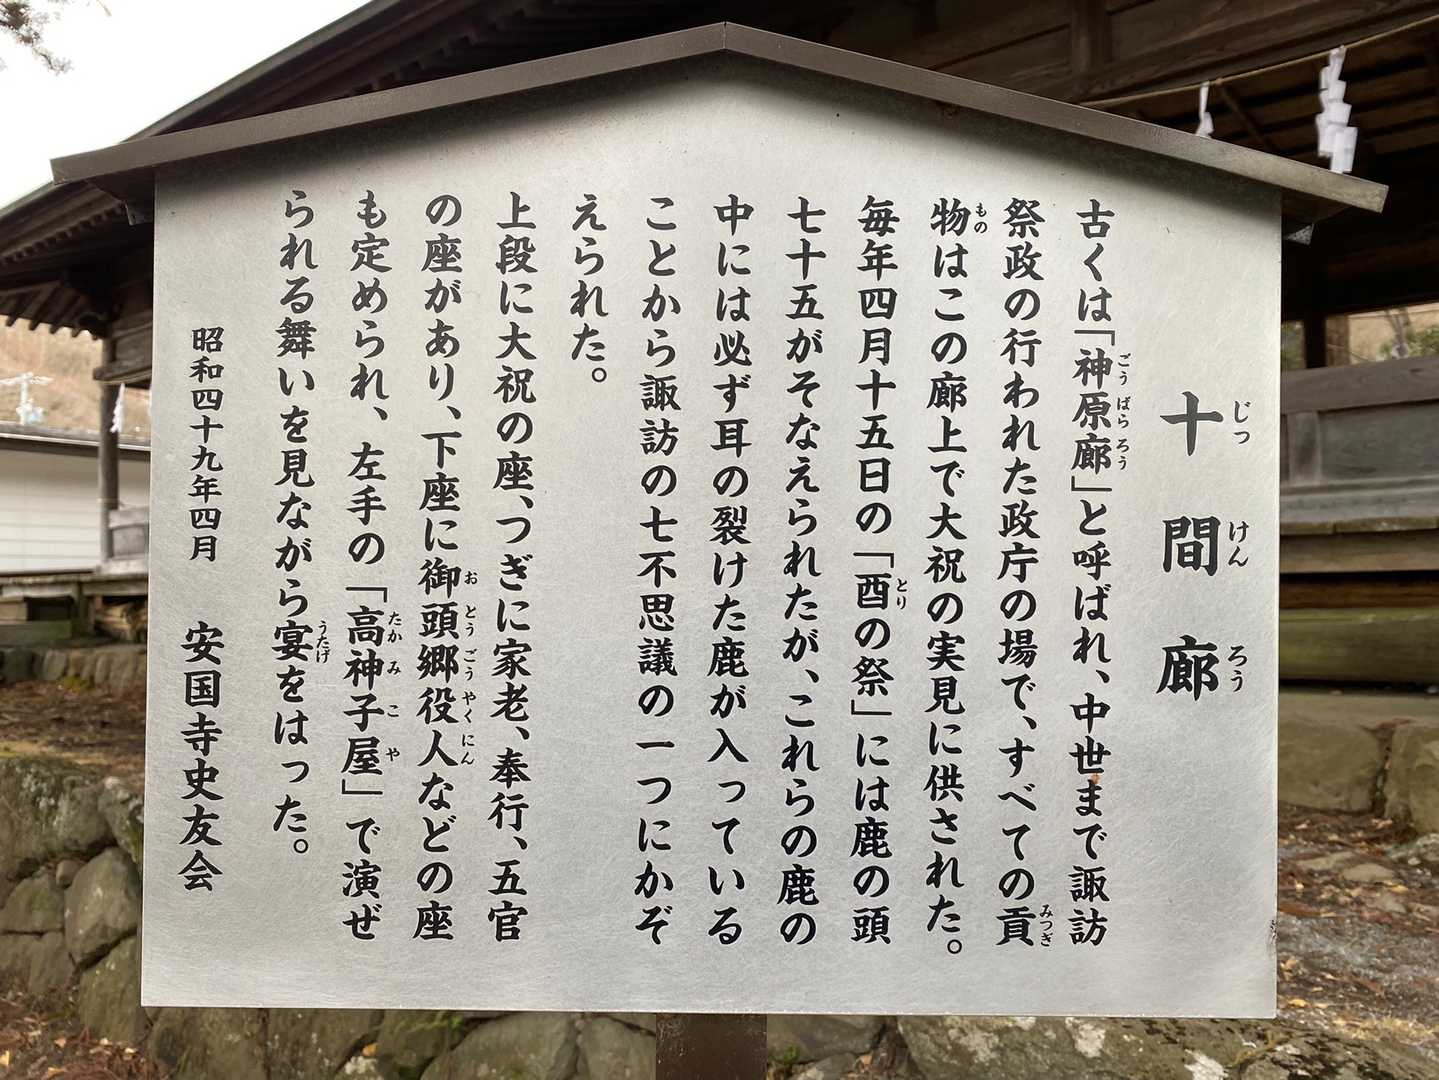 十間廊
じっけんろう
古くは「神原廊」と呼ばれ、中世まで諏訪
ごうばらろう
祭政の行われた政庁の場で、すべての貢
みつぎ
物はこの廊上で大祝の実見に供された。
もの
毎年四月十五日の「酉の祭」には鹿の頭
とり
七十五がそなえられたが、これらの鹿の
中には必ず耳の裂けた鹿が入っている
ことから諏訪の七不思議の一つにかぞ
えられた。
上段に大祝の座、つぎに家老、奉行、五官
の座があり、下座に御頭郷役人などの座
おとうごうやくにん
も定められ、左手の「高神子屋」で演ぜ
たかみこや
られる舞いを見ながら宴をはった。
うたげ
昭和四十九年四月　安国寺史友会